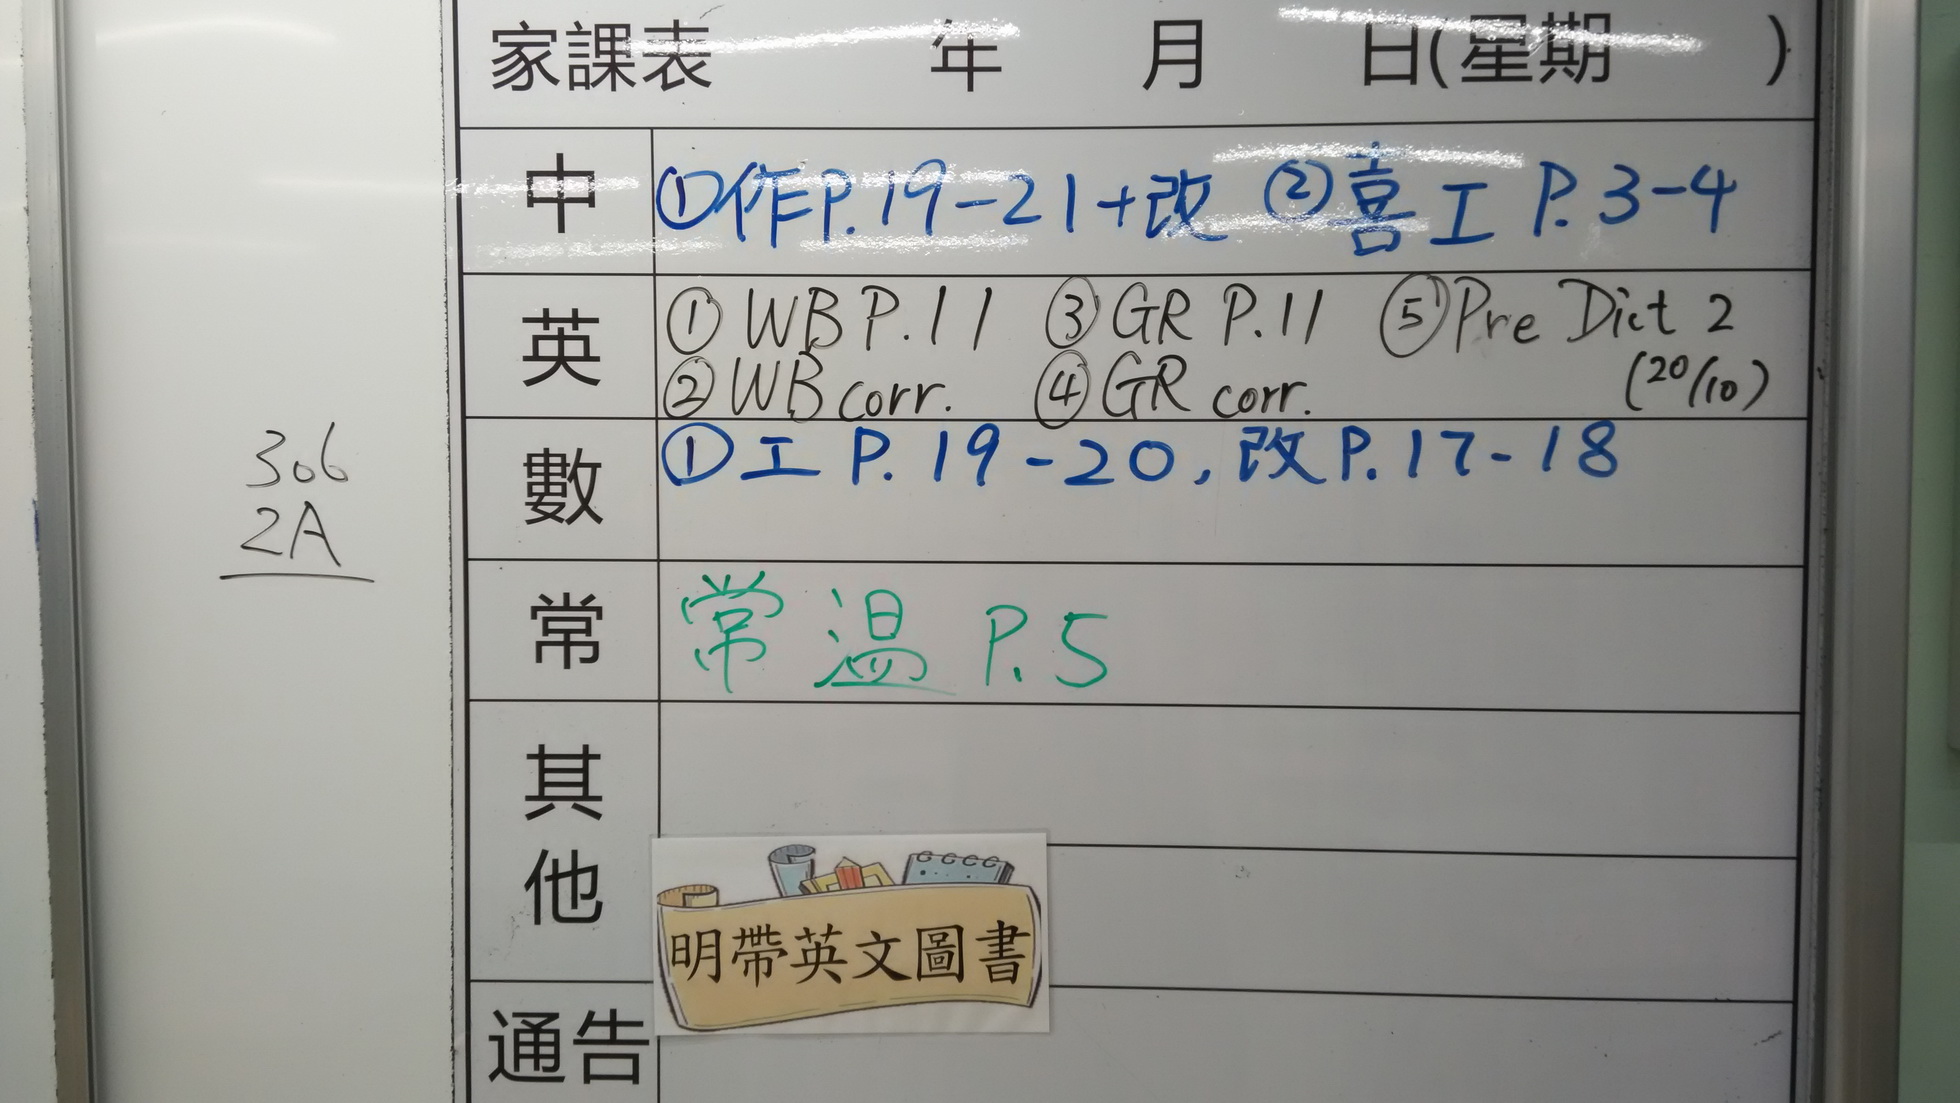 家課表 年 月 日(星期 )
中 ①作P.19-21+改 ②喜工 P.3-4
英 ①WB P.11 ③GR P.11 ⑤Pre Dict 2
②WB corr. ④GR corr. (20/10)
數 ①工 P.19-20, 改P.17-18
306
2A
常 常溫 P.5
其他
明帶英文圖書
通告